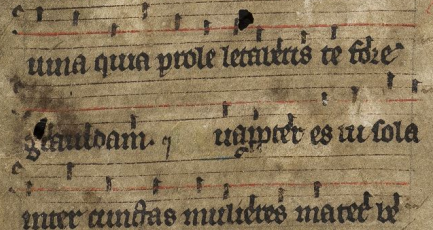 uina quia prole letaberis te fore
grauidam. uaippter es in sola
inter cunctas mulieres mater ie